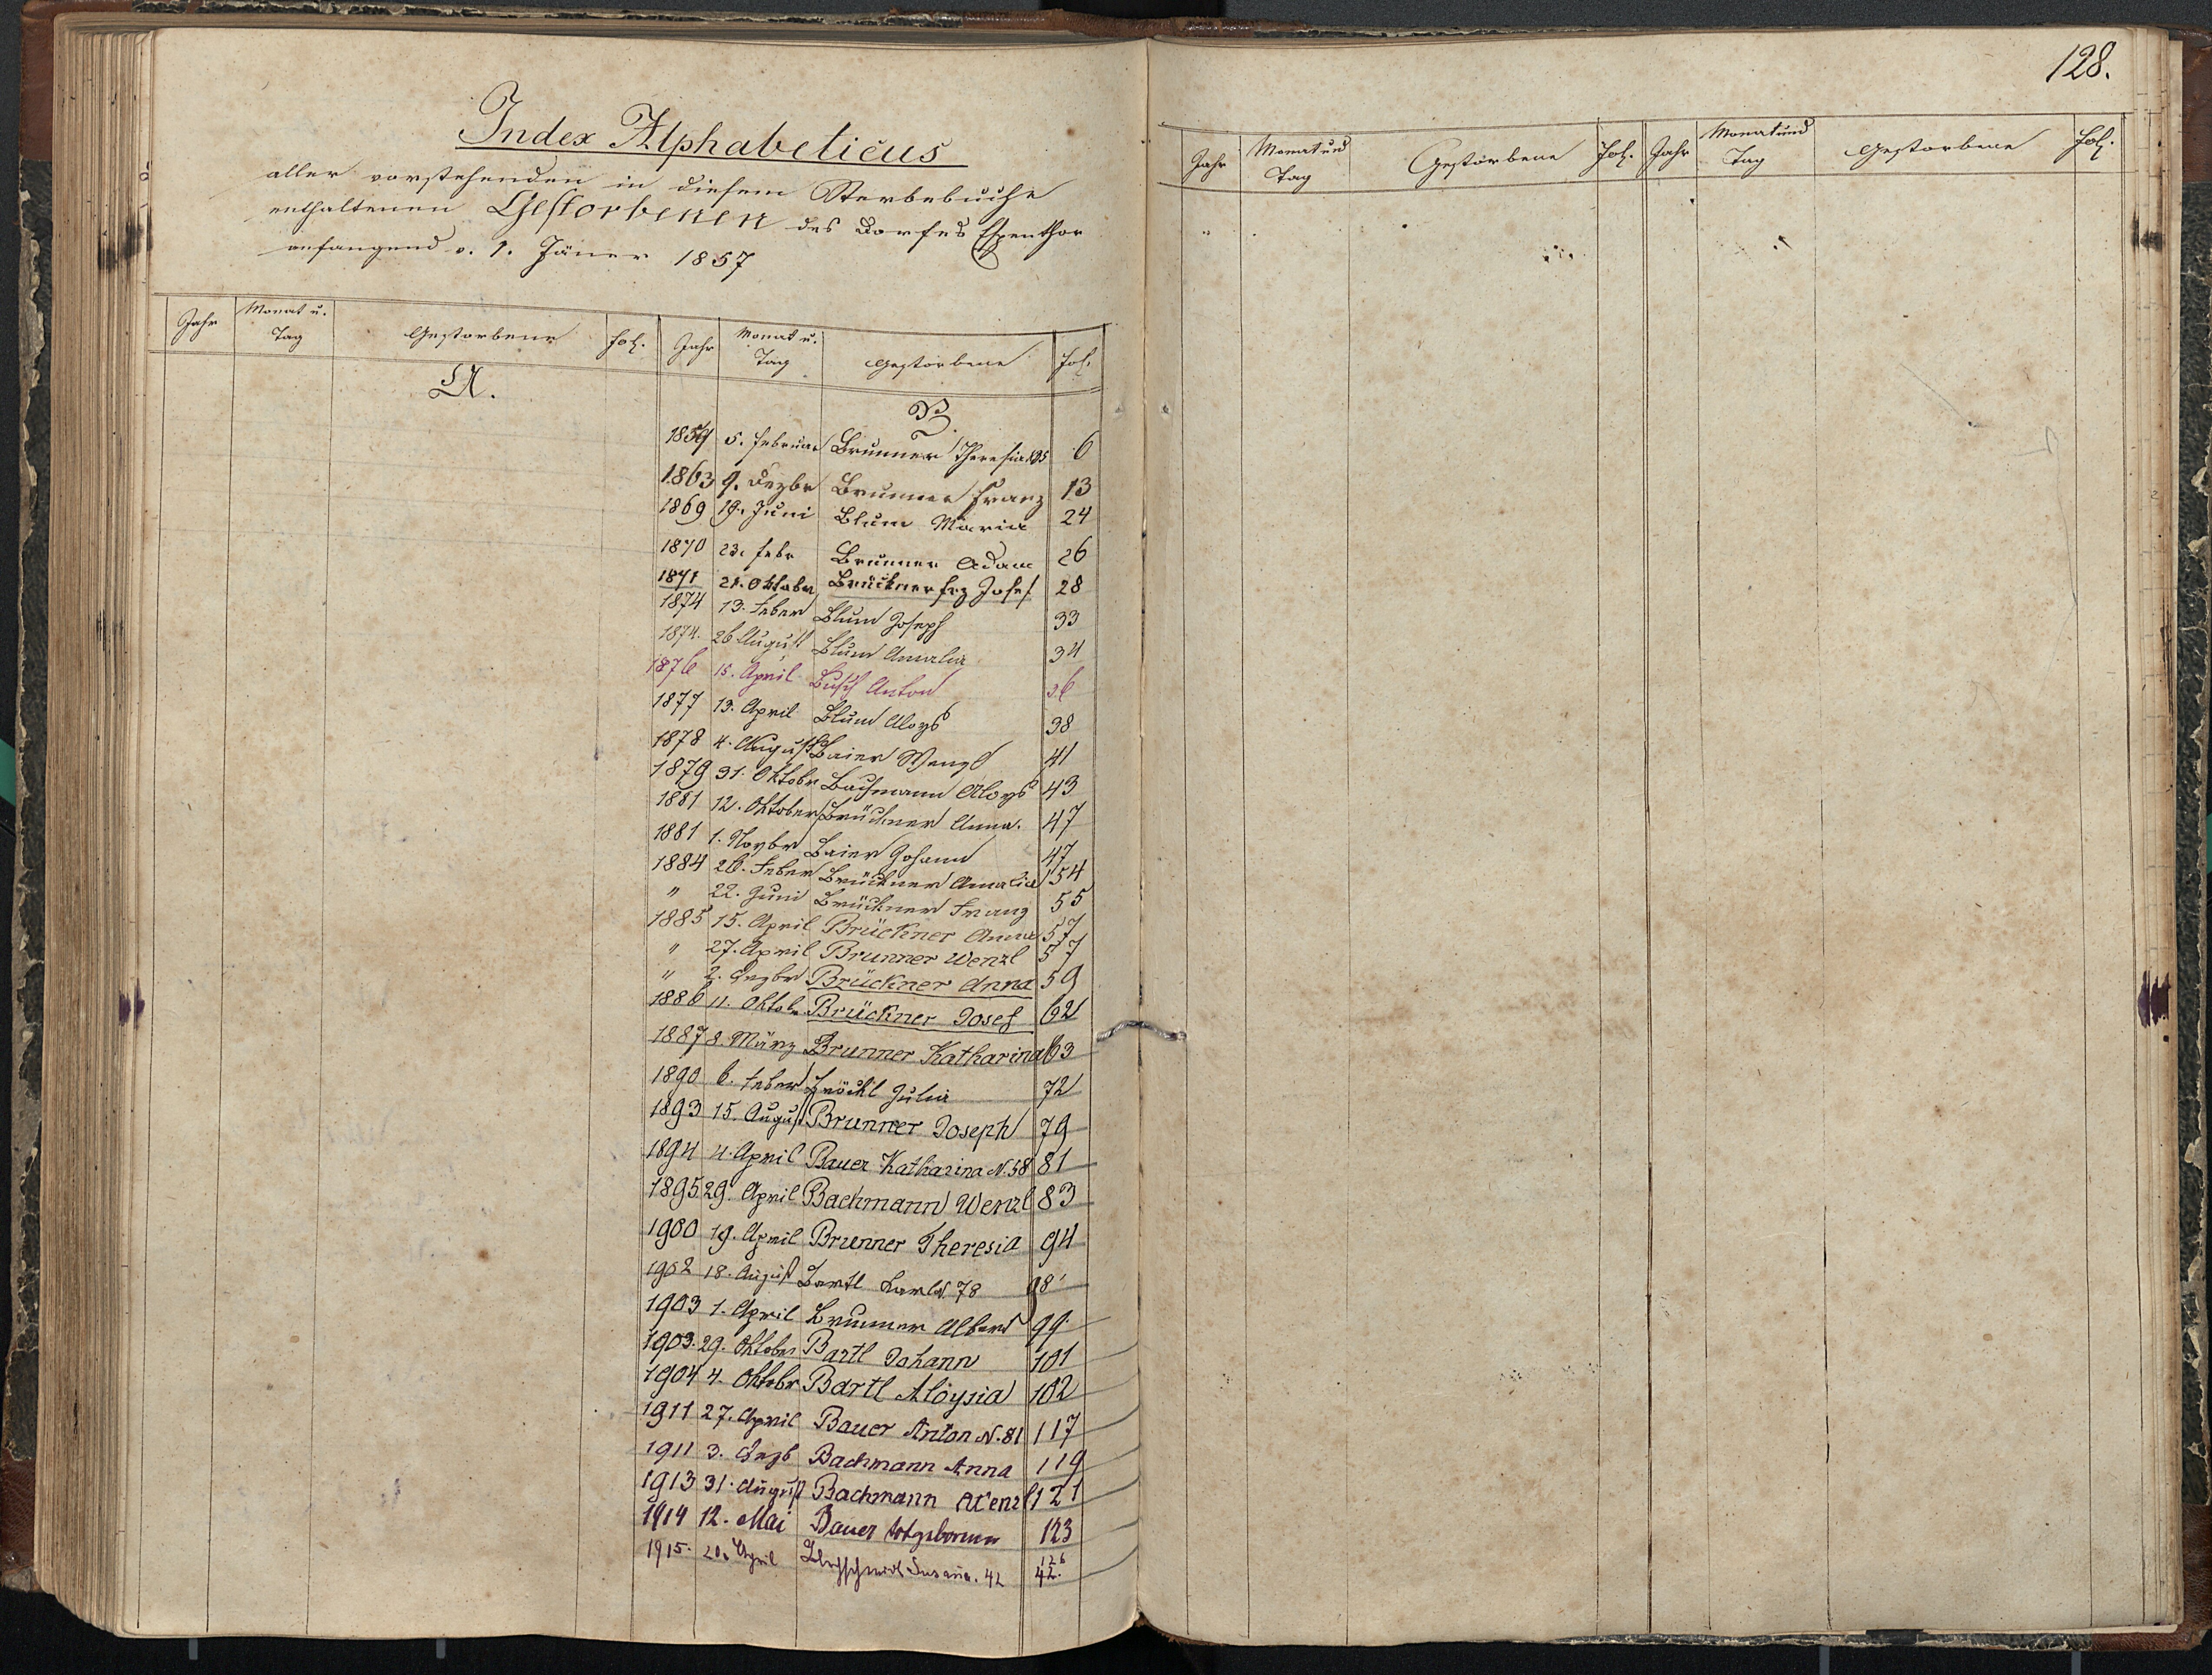 128.
Index Alphabeticus
aller vorstehenden in diesem Sterbebuche
enthaltenen Gestorbenen des Dorfes Espenthor
anfangend v. 1. Jäner 1857
Jahr Monat u. Tag Gestorbene Fol. Jahr Monat u. Tag Gestorbene Fol.
A. B.
1859 5. Februar Brunner Theresia 6
1863 9. Dezbr Brunner Franz 13
1869 19. Juni Blum Maria 24
1870 23. Febr Brunner Adam 26
1871 21. Oktober Brückner Frz Josef 28
1874 13. Feber Blum Joseph 33
1874. 26 August Blum Amalia 34
1876 15. April Busch Anton 36
1877 13. April Blum Aloys 38
1878 4. August Baier Wenzl 41
1879 31. Oktobr Bachmann Aloys 43
1881 12. Oktober Brückner Anna. 47
1881 1. Novbr Baier Johann 47
1884 26. Feber Brückner Amalia 54
" 22. Juni Brückner Franz 55
1885 15. April Brückner Anna 57
" 27. April Brunner Wenzl 57
" 2. Dezbr Brückner Anna 59
1886 11. Oktob. Brückner Josef 62
1887 8. März Brunner Katharina 63
1890 6. Feber Bröckl Julia 72
1893 15. August Brunner Joseph 79
1894 4. April Bauer Katharina N. 58 81
1895 29. April Bachmann Wenzl 83
1900 19. April Brunner Theresia 94
1902 18. August Bartl Karl N. 78 98
1903 1. April Brunner Albert 99
1903. 29. Oktober Bartl Johann 101
1904 4. Oktobr Bartl Aloysia 102
1911 27. April Bauer Anton N. 81 117
1911 3. Dezb Bachmann Anna 119
1913 31. August Bachmann Wenzl 121
1914 12. Mai Bauer totgeboren 123
1915. 20. April Blechschmidt Susanna. 42 126
42.
Jahr Monat und Tag Gestorbene Fol. Jahr Monat und Tag Gestorbene Fol.